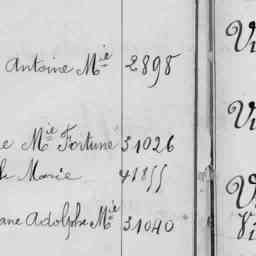 Antoine Mie 2898
e Mie Fortune 31026
h Marie 41855
ane Adolphe Mie 31040
Vi
Vi
Vi
Vi